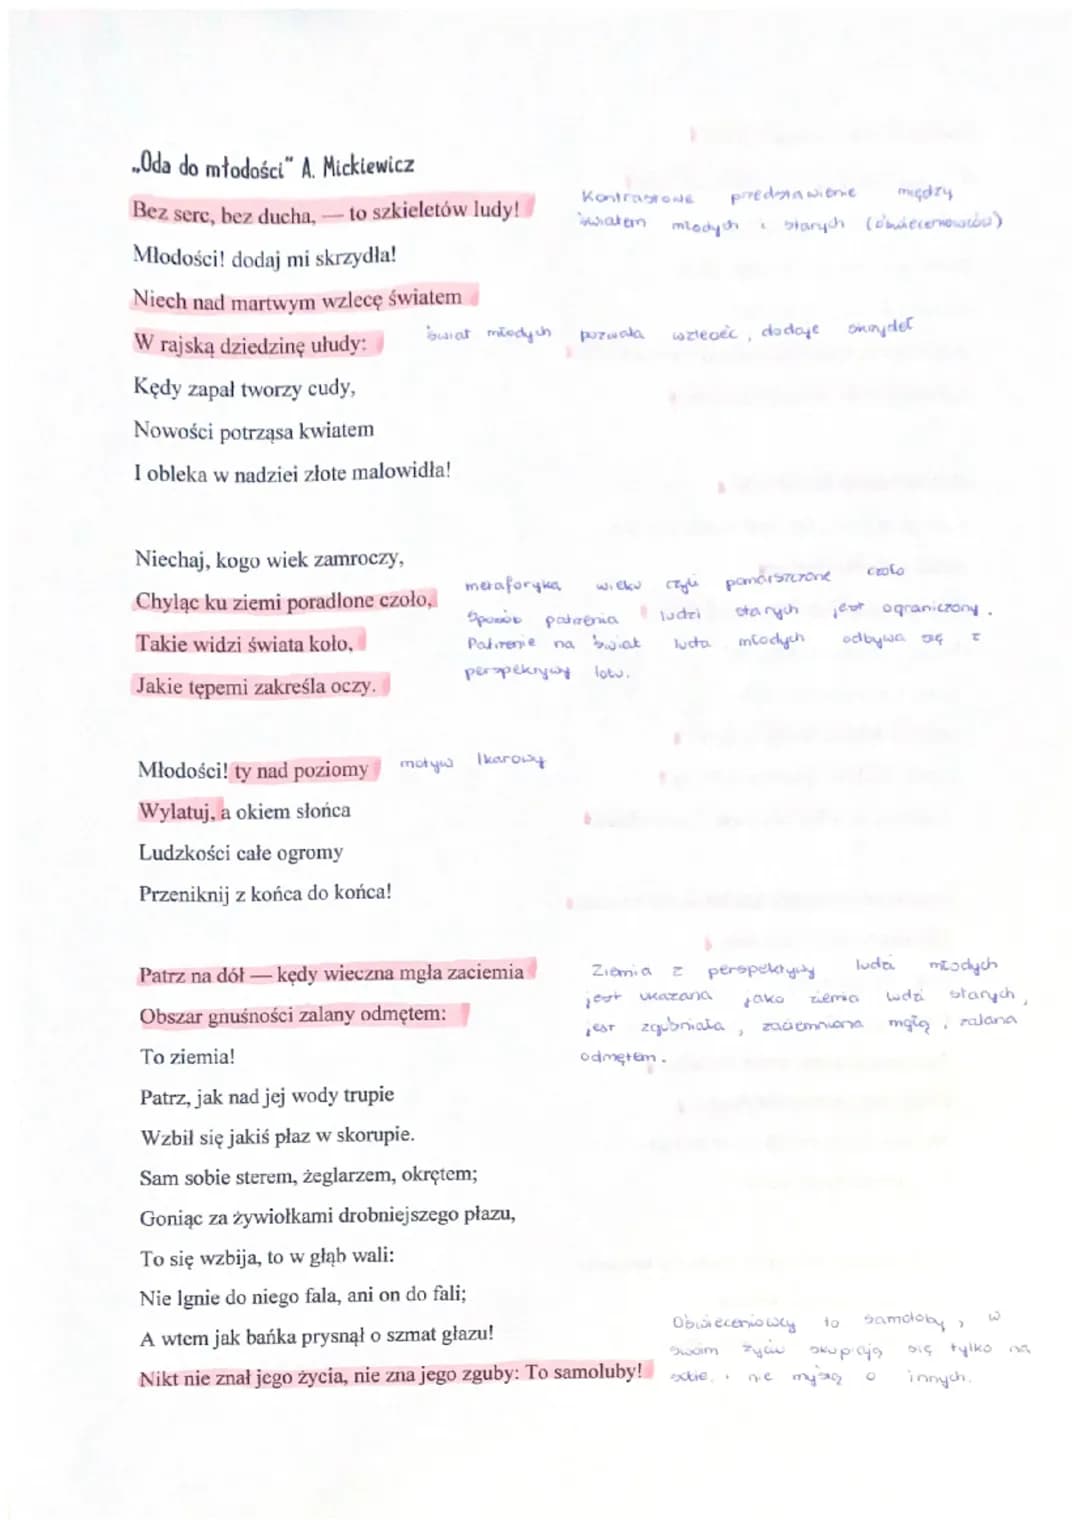 „Oda do młodości" A. Mickiewicz
Bez serc, bez ducha, — to szkieletów ludy!
Kontrastowe przedstawienie między
światem młodych i starych (oświeceniowców)
Młodości! dodaj mi skrzydła!
Niech nad martwym wzlecę światem
W rajską dziedzinę ułudy:
świat młodych pozwala wzlecieć, dodaje skrzydeł
Kędy zapał tworzy cudy,
Nowości potrząsa kwiatem
I obleka w nadziei złote malowidła!
Niechaj, kogo wiek zamroczy,
Chyląc ku ziemi poradlone czoło,
Takie widzi świata koło,
Jakie tępemi zakreśla oczy.
metaforyka wieku czyli pomarszczone czoło
Sposób patrzenia ludzi starych jest ograniczony.
Patrzenie na świat ludzi młodych odbywa się z
perspektywy lotu.
Młodości! ty nad poziomy
motyw Ikarowy
Wylatuj, a okiem słońca
Ludzkości całe ogromy
Przeniknij z końca do końca!
Patrz na dół — kędy wieczna mgła zaciemia
Obszar gnuśności zalany odmętem:
To ziemia!
Ziemia z perspektywy ludzi młodych
jest ukazana jako ziemia ludzi starych,
jest zgubniała, zaciemniona mgłą, zalana
odmętem.
Patrz, jak nad jej wody trupie
Wzbił się jakiś płaz w skorupie.
Sam sobie sterem, żeglarzem, okrętem;
Goniąc za żywiołkami drobniejszego płazu,
To się wzbija, to w głąb wali:
Nie lgnie do niego fala, ani on do fali;
A wtem jak bańka prysnął o szmat głazu!
Nikt nie znał jego życia, nie zna jego zguby: To samoluby!
Oświeceniowcy to samoluby, w
swoim życiu skupiają się tylko na
sobie, nie myślą o innych.